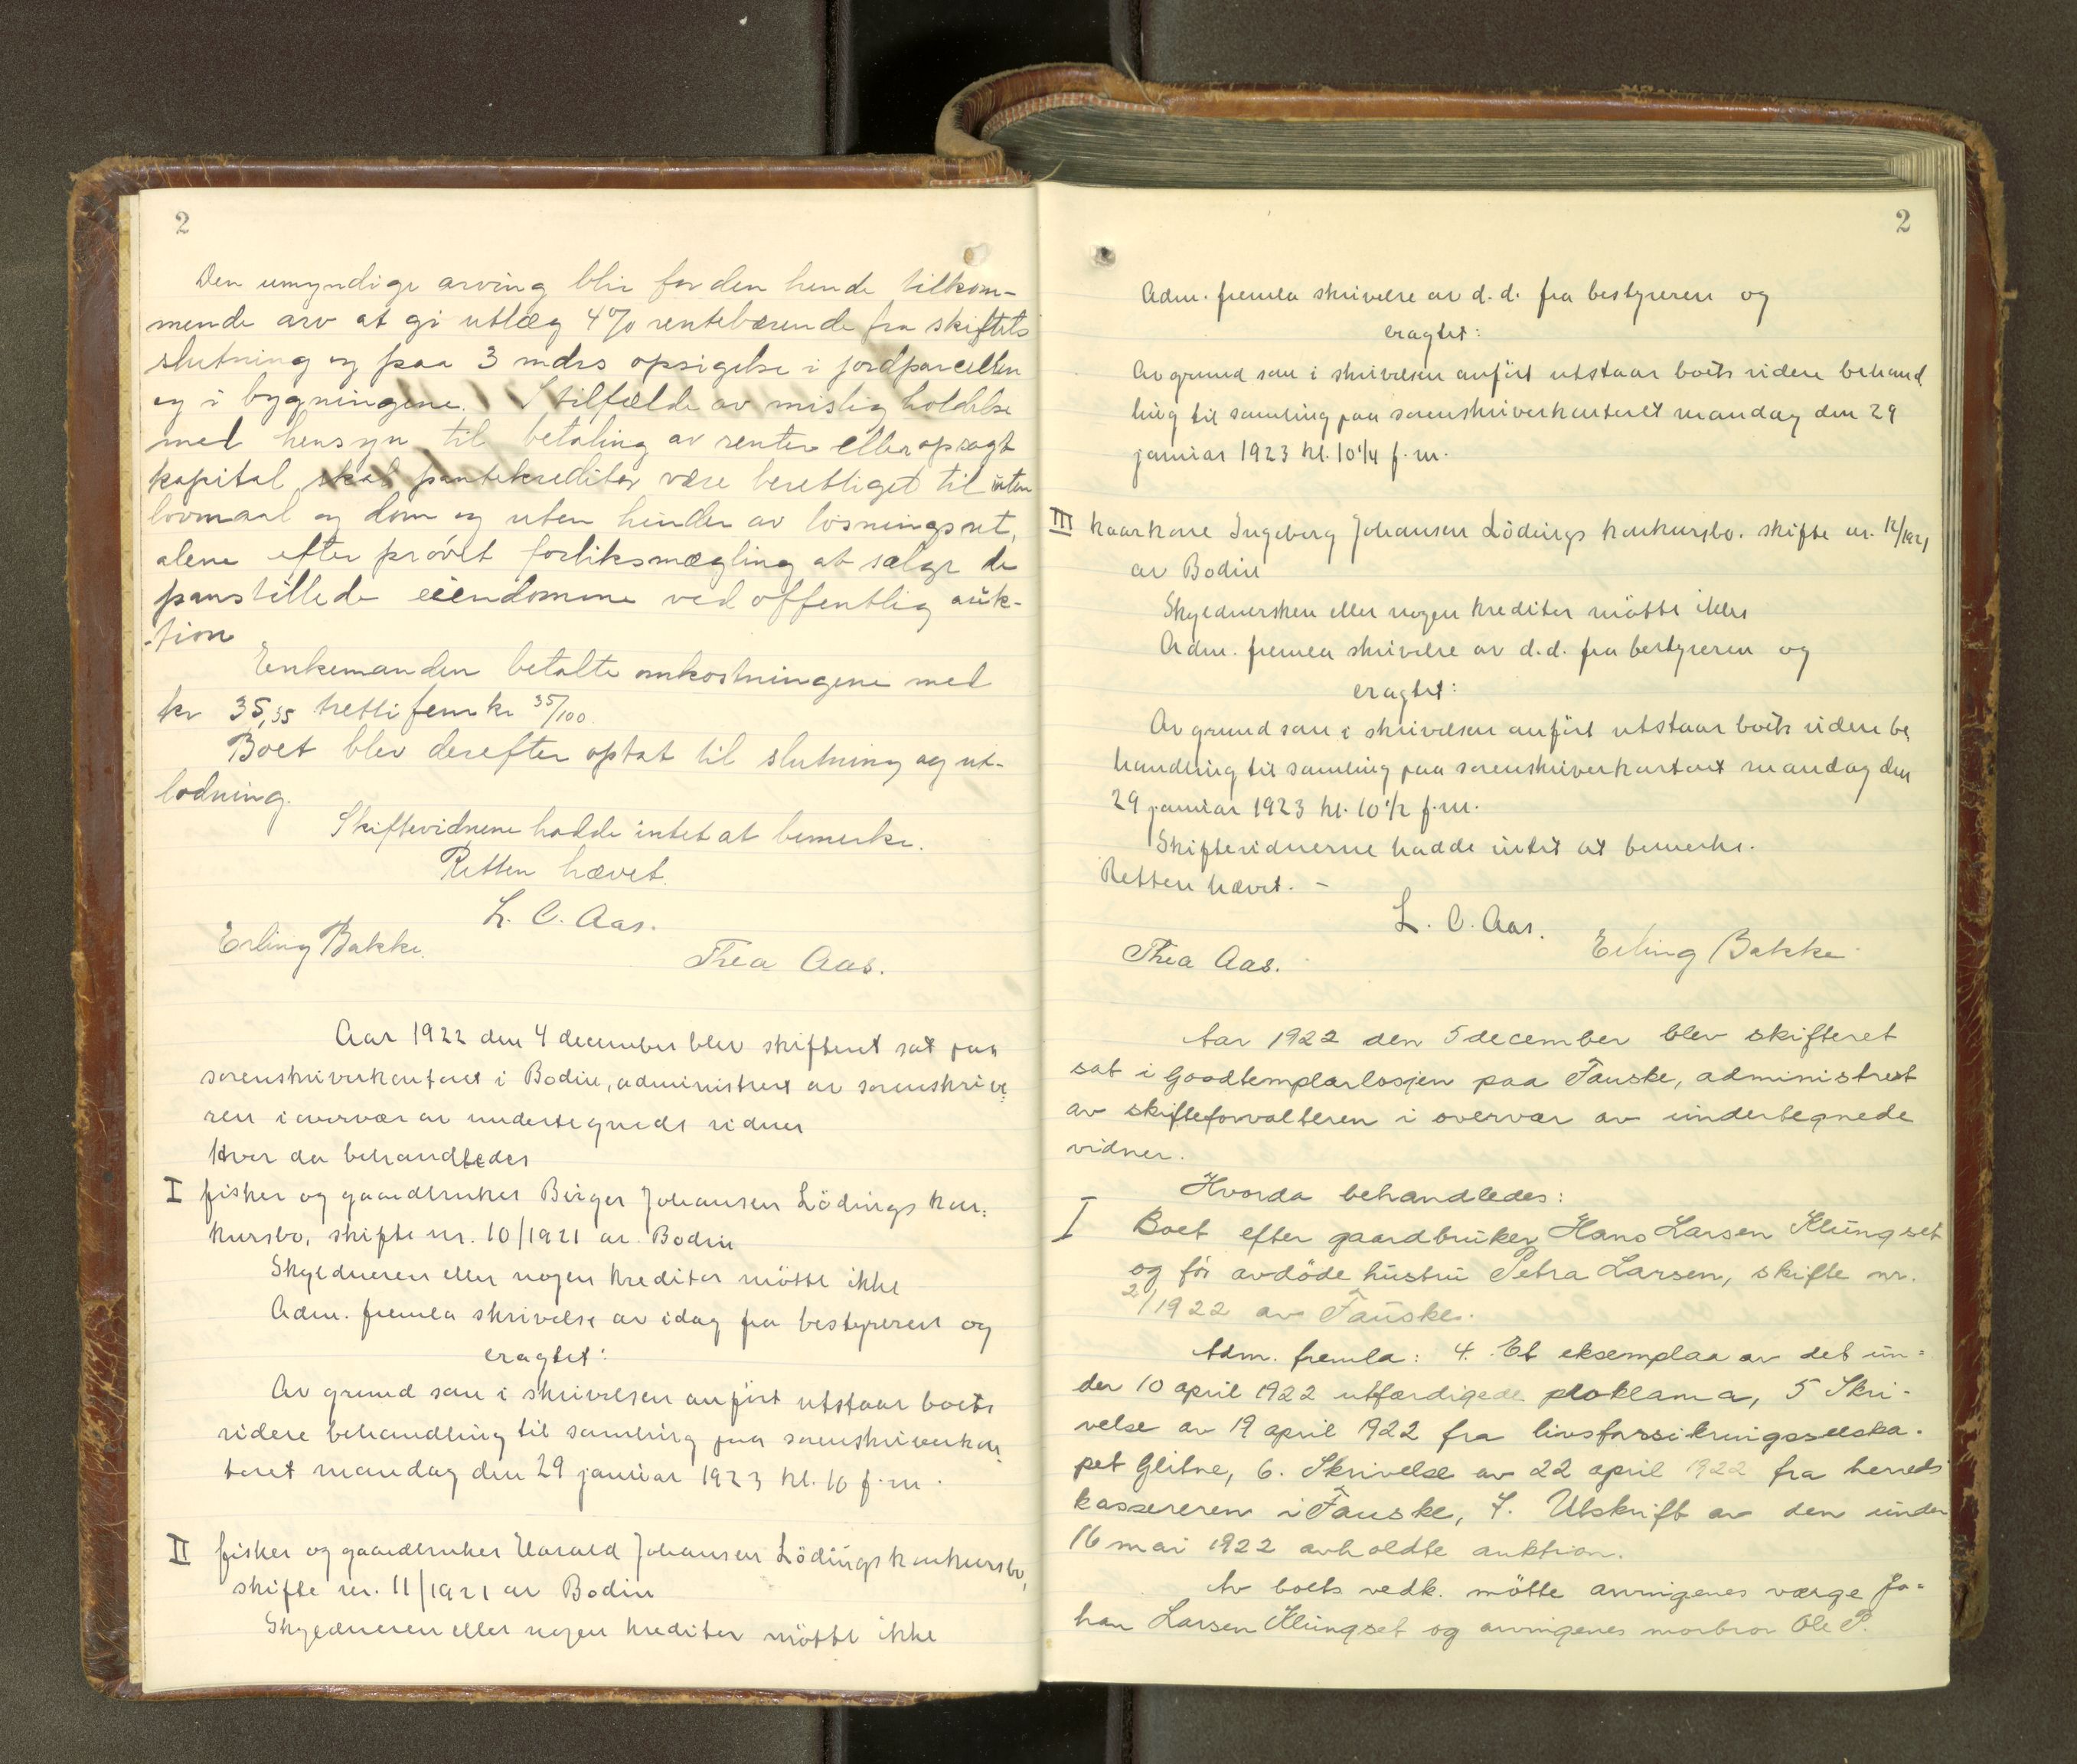 2
Den umyndige arving blir for den hende tilkom-
mende arv at gi utlæg 4% rentebærende fra skiftets
slutning og paa 3 mdrs opsigelse i jordparcellen
og i bygningene. I tilfælde av mislig holdelse
med hensyn til betaling av renter eller opsagt
kapital skal pantekreditor være berettiget til uten
lovmaal og dom og uten hinder av løsningsret,
alene efter prøvet forliksmægling at sælge de
panstillede eiendomme ved offentlig auk-
tion
Enkemanden betalte omkostningene med
kr 35,35 trettifem kr 35/100.
Boet blev derefter optat til slutning og ut-
lodning.
Skiftevidnene hadde intet at bemerke.
Retten hævet.
L. C. Aas.
Erling Bakke. Thea Aas.
Aar 1922 den 4 december blev skifteret sat paa
sorenskriverkontoret i Bodin, administrert av sorenskrive
ren i overvær av undertegnede vidner
Hvor da behandledes
I fisker og gaardbruker Birger Johansen Lödings kon-
kursbo, skifte nr. 10/1921 av Bodin
Skyldneren eller nogen kreditor mötte ikke
Adm. fremla skrivelse av idag fra bestyreren og
eragtet:
Av grund som i skrivelsen anfört utstaar boets
videre behandling til samling paa sorenskriverkon
toret mandag den 29 januar 1923 kl. 10 f.m.
II fisker og gaardbruker Harald Johansen Lödings konkursbo,
skifte nr. 11/1921 av Bodin
Skyldneren eller nogen kreditor mötte ikke
2
Adm. fremla skrivelse av d.d. fra bestyreren og
eragtet:
Av grund som i skrivelsen anfört utstaar boets videre behand
ling til samling paa sorenskriverkontoret mandag den 29
januar 1923 kl. 10 1/4 f.m.
III kaarkone Ingeborg Johansen Lödings konkursbo. skifte nr. 12/1921
av Bodin
Skyldnersken eller nogen kreditor mötte ikke
Adm. fremla skrivelse av d.d. fra bestyreren og
eragtet:
Av grund som i skrivelsen anfört utstaar boets videre be
handling til samling paa sorenskriverkontoret mandag den
29 januar 1923 kl. 10 1/2 f.m.
Skiftevidnerne hadde intet at bemerke.
Retten hævet. -
L. C. Aas.
Thea Aas. Erling Bakke
Aar 1922 den 5 december blev skifteret
sat i Goodtemplarlosjen paa Fauske, administrert
av skifteforvalteren i overvær av undertegnede
vidner.
Hvorda behandledes:
I Boet efter gaardbruker Hans Larsen Klungset
og før avdöde hustru Petra Larsen, skifte nr.
2/1922 av Fauske.
Adm. fremla: 4. Et eksemplaa av det un-
der 10 april 1922 utfærdigede ploklama, 5 Skri-
velse av 19 april 1922 fra livsforsikringsselska-
pet Glitne, 6. Skrivelse av 22 april 1922 fra herreds
kassereren i Fauske, 7. Utskrift av den under
16 mai 1922 avholdte auktion.
Av boets vedk. mötte arvingenes værge Jo-
han Larsen Klungset og arvingenes morbror Ole P.